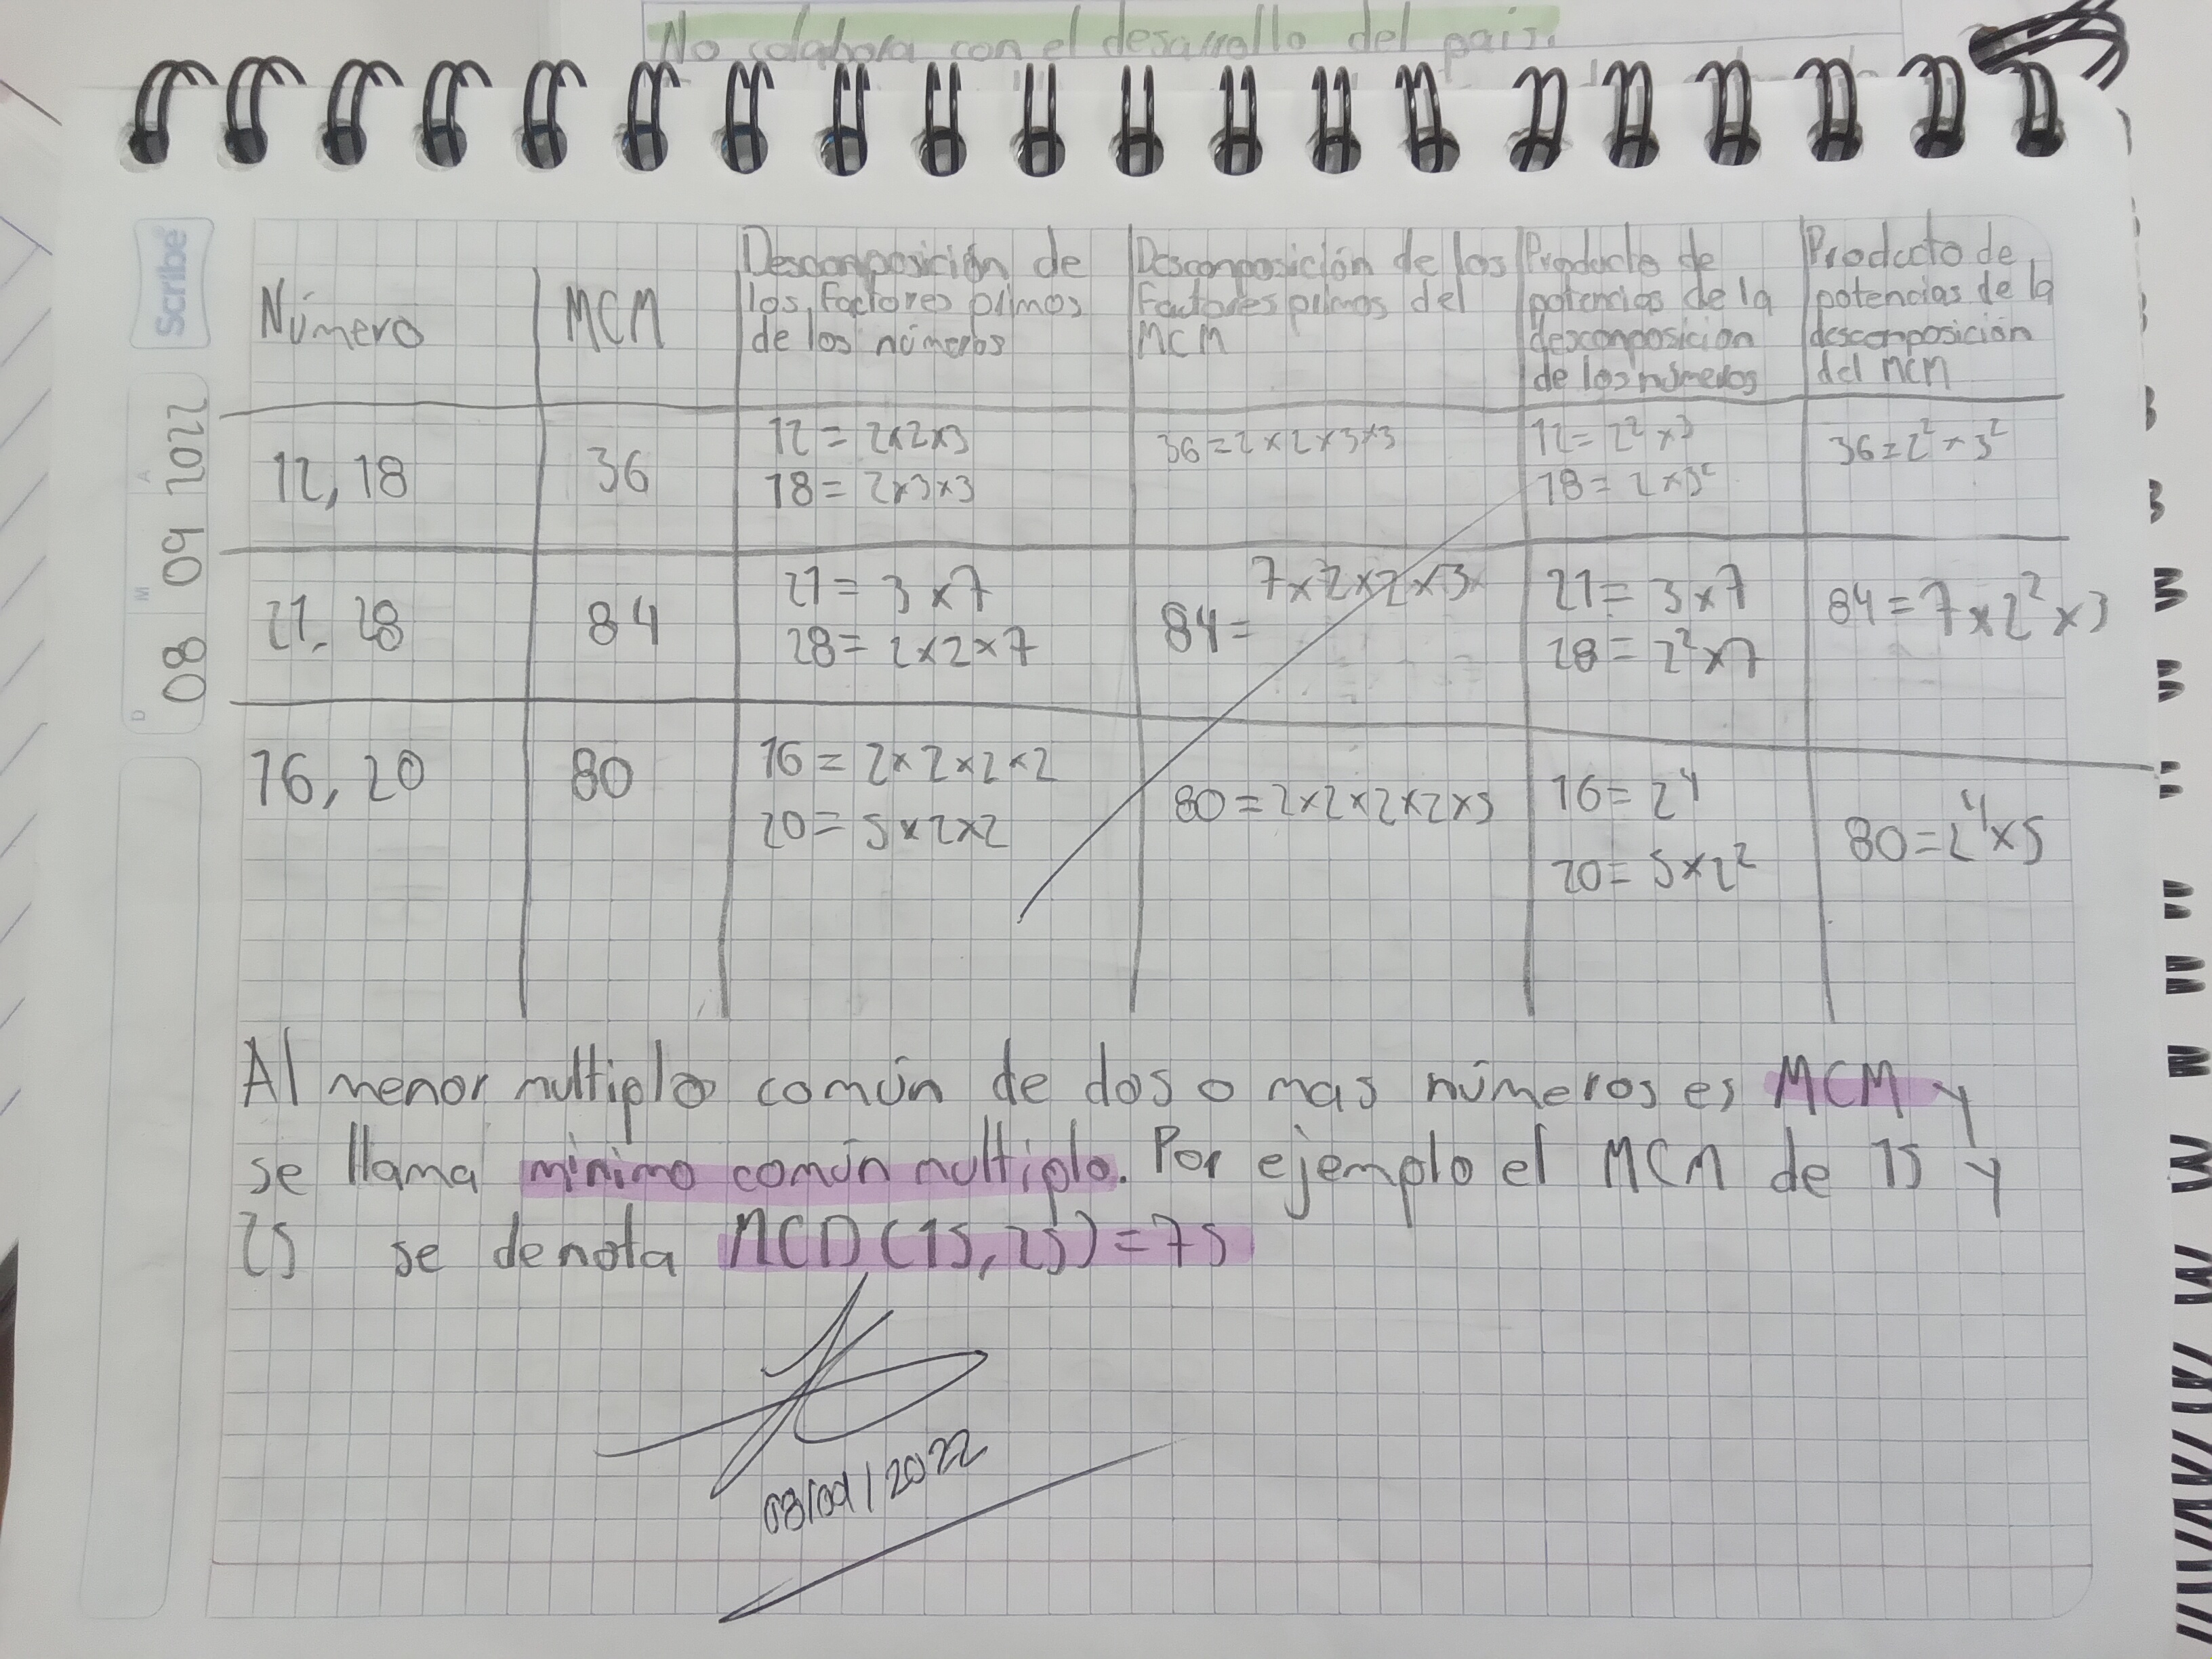 No colabora con el desarrollo del país.
Scribe
D 08 M 09 A 2022
Número
MCM
Desconposición de
los factores primos
de los números
Desconposición de los
factores primos del
MCM
Producto de
potencias de la
desconposicion
de los números
Producto de
potencias de la
desconposición
del MCM
12, 18
36
12 = 2x2x3
18 = 2x3x3
36=2x2x3x3
12=2² x3
18= 2x3²
36=2² x 3²
21, 28
84
21= 3x7
28= 2x2x7
84= 7x2x2x3
21= 3x7
28= 2²x7
84=7x2²x3
16, 20
80
16=2x2x2x2
20= 5x2x2
80=2x2x2x2x5
16=2⁴
20= 5x2²
80=2⁴x5
Al menor multiplo común de dos o mas números es MCM y
se llama mínimo común multiplo. Por ejemplo el MCM de 15 y
25 se denota MCD(15,25)=75
08/09/2022